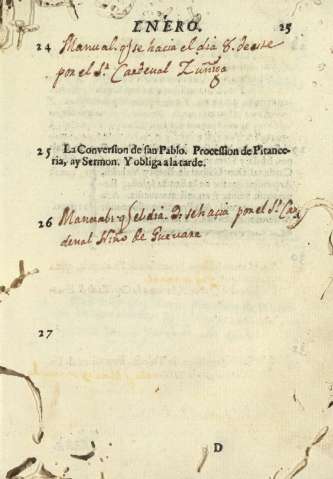 ENERO. 25
24 Manual. q̃ se hacia el dia 8. de este
por el S.r Cardenal Zuñiga
25 La Conversion de san Pablo. Procession de Pitance-
ria, ay Sermon. Y obliga a la tarde.
26 Manual. q̃ el dia se hacia por el S.r Car
denal Niño de Guevara
27
D